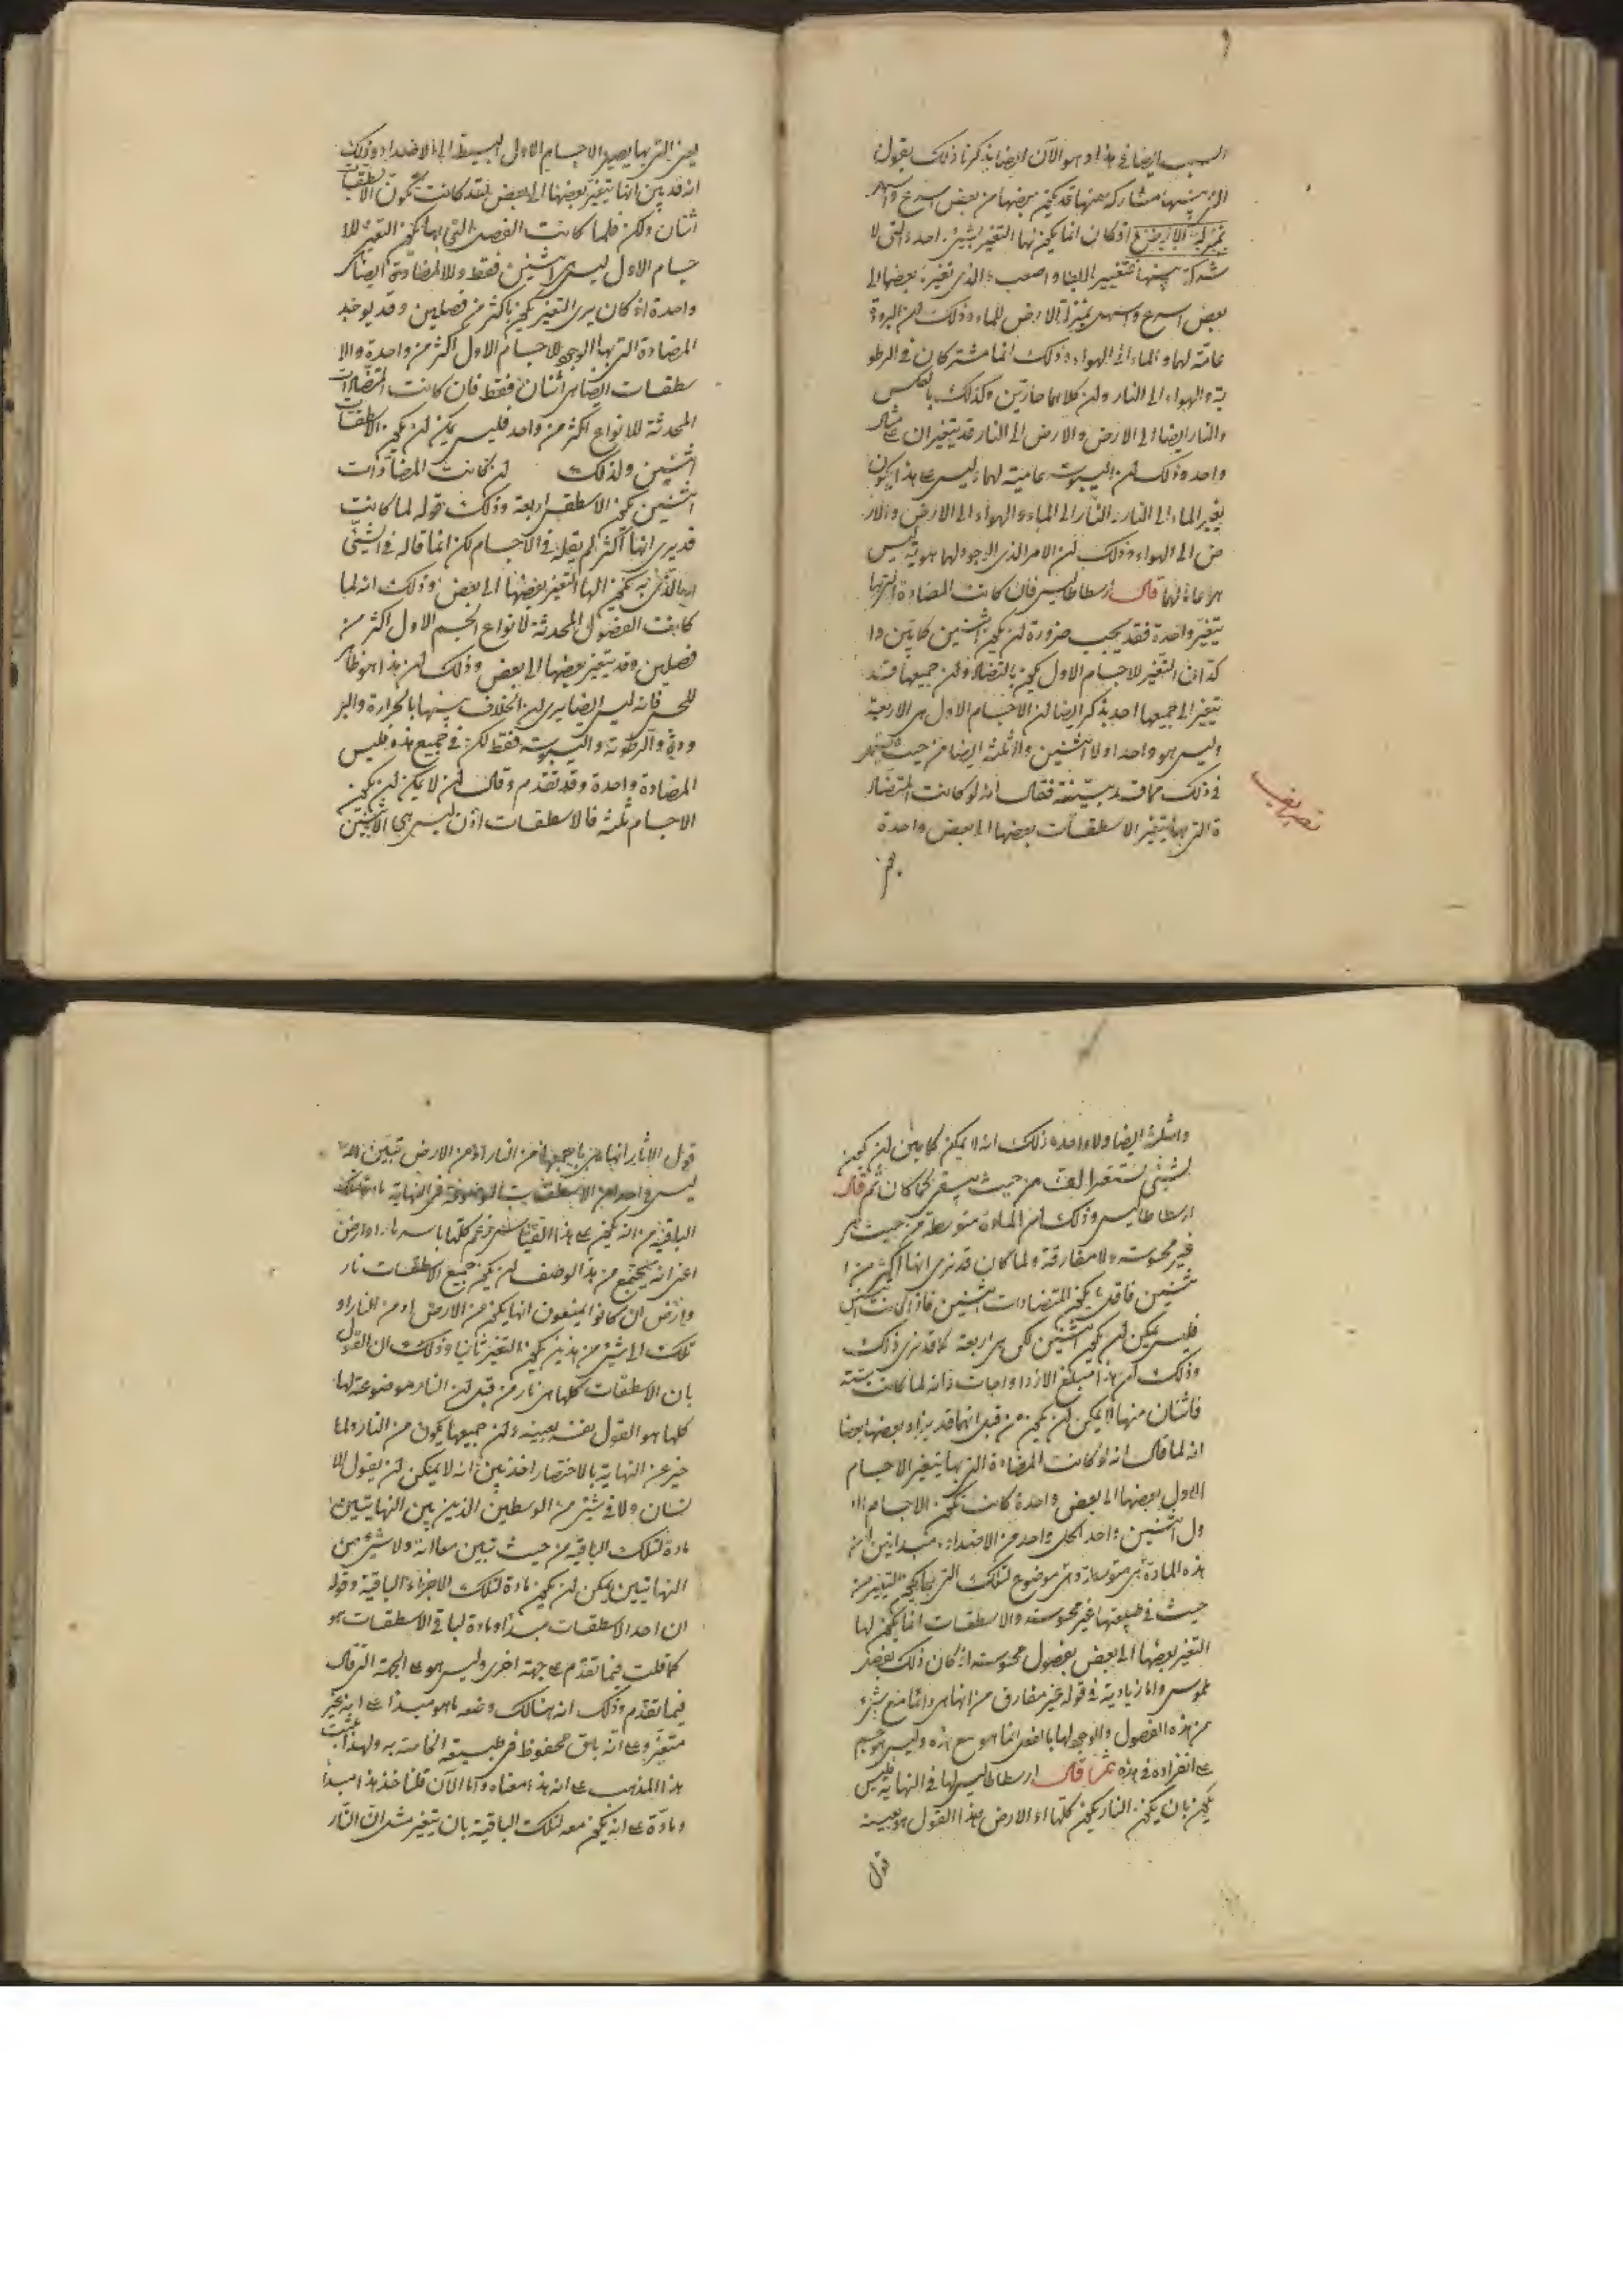 السبب ايضا فى هذا وهو الآن ايضا يذكرنا ذلك بقول
التى بينها مشاركة بعضها قد يكون بعضها من بعض اسرع واسهل
بمنزلة الارض اذ كان انما يكون لها التغير بشىء واحد والتى لا
شركة بينها فتغيير ابطا واصعب والذى تغيره بعضها الى
بعض اسرع واسهل بمنزلة الارض للماء وذلك لان البرودة
عامة لهما والماء الى الهواء وذلك انما مشتركان فى الرطو
بة والهواء الى النار ولان كلاهما حارين وكذلك بالعكس
والنار ايضا الى الارض والارض الى النار قد يتغيران على مثال
واحد وذلك لان اليبوسة عامية لهما وليس على هذا يكون
يغير الماء الى النار والنار الى الماء والهواء الى الارض والار
ض الى الهواء وذلك لان الامر الذى الوجود لها هويته ليس
هو عاما لهما قال ارسطاطاليس فان كانت المضادة التى بها
يتغير واحدة فقد يجب ضرورة ان يكون اثنين كانتين وا
كد ان التغير للاجسام الاول يكون بالتضاد وان جميعها قد
يتغير الى جميعها احد يذكر ايضا ان الاجسام الاول هى الاربعة
وليس هو واحدا ولا اثنين ولا ثلثة ايضا من حيث
فى ذلك مما قد بينته فقال انه لو كانت المتضاد
ة التى بها يتغير الاسطقسات بعضها الى بعض واحدة
يعنى التى بها يصير الاجسام الاول البسيطة الى الاضداد وذلك
انه قد بين انها يتغير بعضها الى بعض فقد كانت تكون الاسطقسات
اثنان ولكن فلما كانت الفصول التى بها يكون التغير للا
جسام الاول ليس هى اثنين فقط وللا لمضادة ايضا
واحدة اذ كان يرى التغير يكون باكثر من فصلين وقد يوجد
المضادة التى بها الوجود للاجسام الاول اكثر من واحدة والا
سطقسات ايضا هى اثنان فقط فان كانت المتضادات
المحدثة للانواع اكثر من واحد فليس يمكن ان يكون الاسطقسات
اثنين ولذلك لو كانت المضادات
اثنين يكون الاسطقس اربعة وذلك قوله لما كانت
قد يرى انها اكثر لم يقله فى الاجسام لكن انما قاله فى الشىء
الذى به يكون لها التغير بعضها الى بعض وذلك انه لما
كانت الفصول المحدثة لانواع الجسم الاول اكثر من
فصلين وقد يتغير بعضها الى بعض وذلك ان هذا هو ظاهر
للحس فانه ليس ايضا يرى ان الخلاف بينها بالحرارة والبر
ودة والرطوبة واليبوسة فقط لكن فى جميع هذه فليس
المضادة واحدة وقد تقدم وقال ان لا يمكن ان يكون
الاجسام ثلثة فالاسطقسات اذن ليس هى الاثنين
واثلثة ايضا ولا واحدة وذلك انه لا يمكن كما بين ان يكون
لشىء من حيث كما كان ثم قال
ارسطاطاليس وذلك ان المادة متوسطة من حيث هى
غير محسوسة ولا مفارقة ولما كان قد نرى انها اكثر من ا
ثنين فاقل يكون المتضادات اثنين فاذ كانت اثنين
فليس يمكن ان يكون اثنين لكن هى اربعة كما قد نرى ذلك
وذلك ان هذا مبلغ الازدواجات فانه لما كانت ستة
فاثنان منها لا يمكن ان يكون من قبل انها قد يضاد بعضها بعضا
انه لما قال انه لو كانت المضادة التى بها يتغير الاجسام
الاول بعضها الى بعض واحدة كانت يكون الاجسام الا
ول اثنين واحد لكل واحد من الاضداد من
هذه المادة هى متوسطة وهى موضوع لتلك التى بها يكون التغير من
حيث فى طبيعتها غير محسوسة والاسطقسات انما يكون لها
التغير بعضها الى بعض بفصول محسوسة اذ كان ذلك بفصل
ملموس واما زيادته فى قوله غير مفارق من انها هى دائما مع شىء
من هذه الفصول والوجود لها بالفعل انما هو مع هذه وليس هو جسم
على انفراده فى هذه ثم قال ارسطاطاليس لها فى النهاية فليس
يكون بان يكون النار يكون كلها او الارض وهذا القول هو بعينه
قول
قول الاثار انها هى باجمعها من النار او من الارض تبين انه
ليس واحد من الاسطقسات الموضوعة فى النهاية مادة لتلك
الباقية من انه يكون على هذا القياس كلها باسره نار او ارض
اعنى انه يجتمع من هذا الوصف ان يكون جميع الاسطقسات نار
وارض ان كانوا يضعون انها يكون من الارض او من النار او
تلك الى شىء من هذين يكون التغير ثانيا وذلك ان القول
بان الاسطقسات كلها هى نار من قبل ان النار موضوعة لها
كلها هو القول نفسه بعينه وان جميعها يكون من النار ولما
خبر عن النهاية بالاختصار اخذ يبين انه لا يمكن ان يقول الا
نسان ولا فى شىء من الوسطين الذين بين النهايتين
مادة لتلك الباقية من حيث تبين معا انه ولا شىء من
النهايتين يمكن ان يكون مادة لتلك الاجزاء الباقية وقوله
ان احد الاسطقسات مبدأ ومادة لباقى الاسطقسات هو
كما قلت فيما تقدم على جهة اخرى وليس هو على الجهة التى قال
فيما تقدم وذلك انه هنالك وضعه ما هو مبدأ على انه غير
متغير وعلى انه باق محفوظ فى طبيعته الخاصة به ولهذا
هذا المذهب على انه هذا معناه واما الآن قلنا خذ هذا مبدأ
ومادة على انه يكون معه لتلك الباقية بان يتغير مثل ان النار